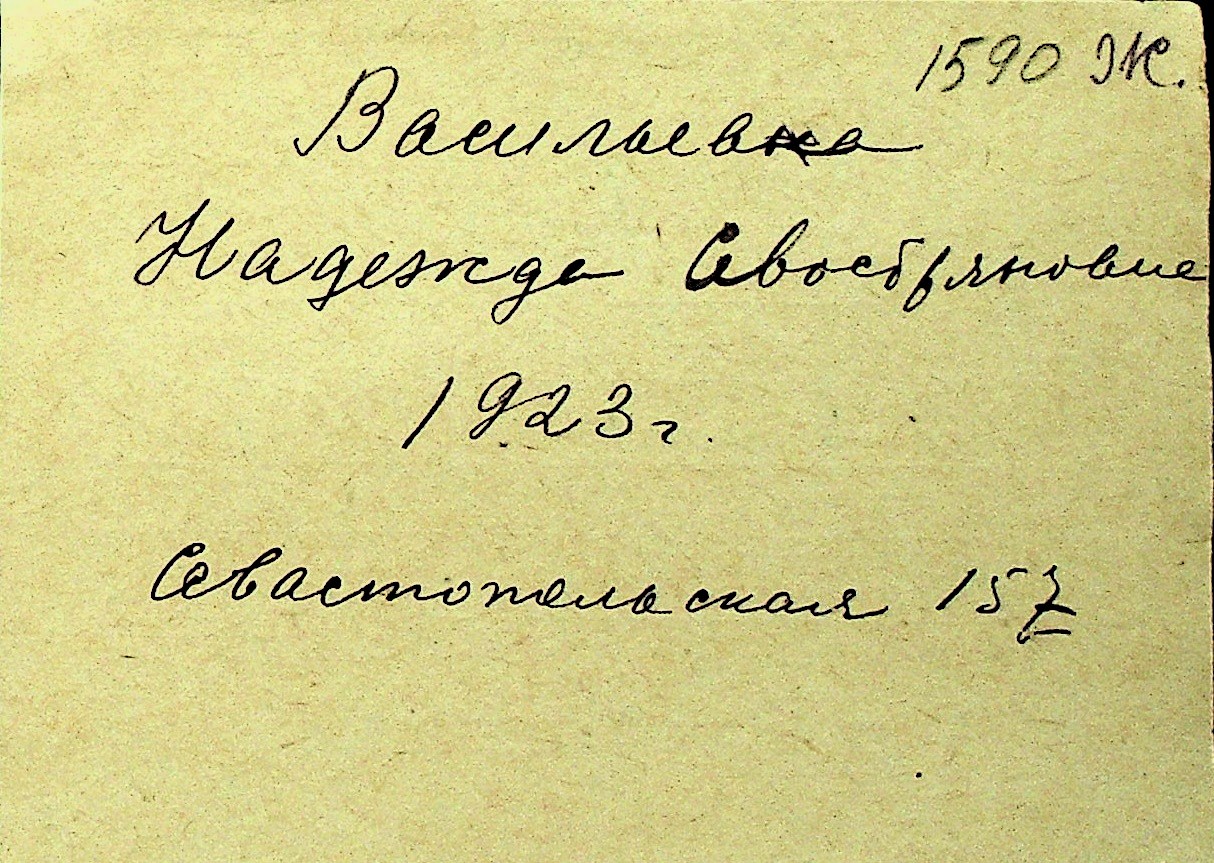 1590 Ж.
Васильева
Надежда
1923 г.
Севастопольская 157